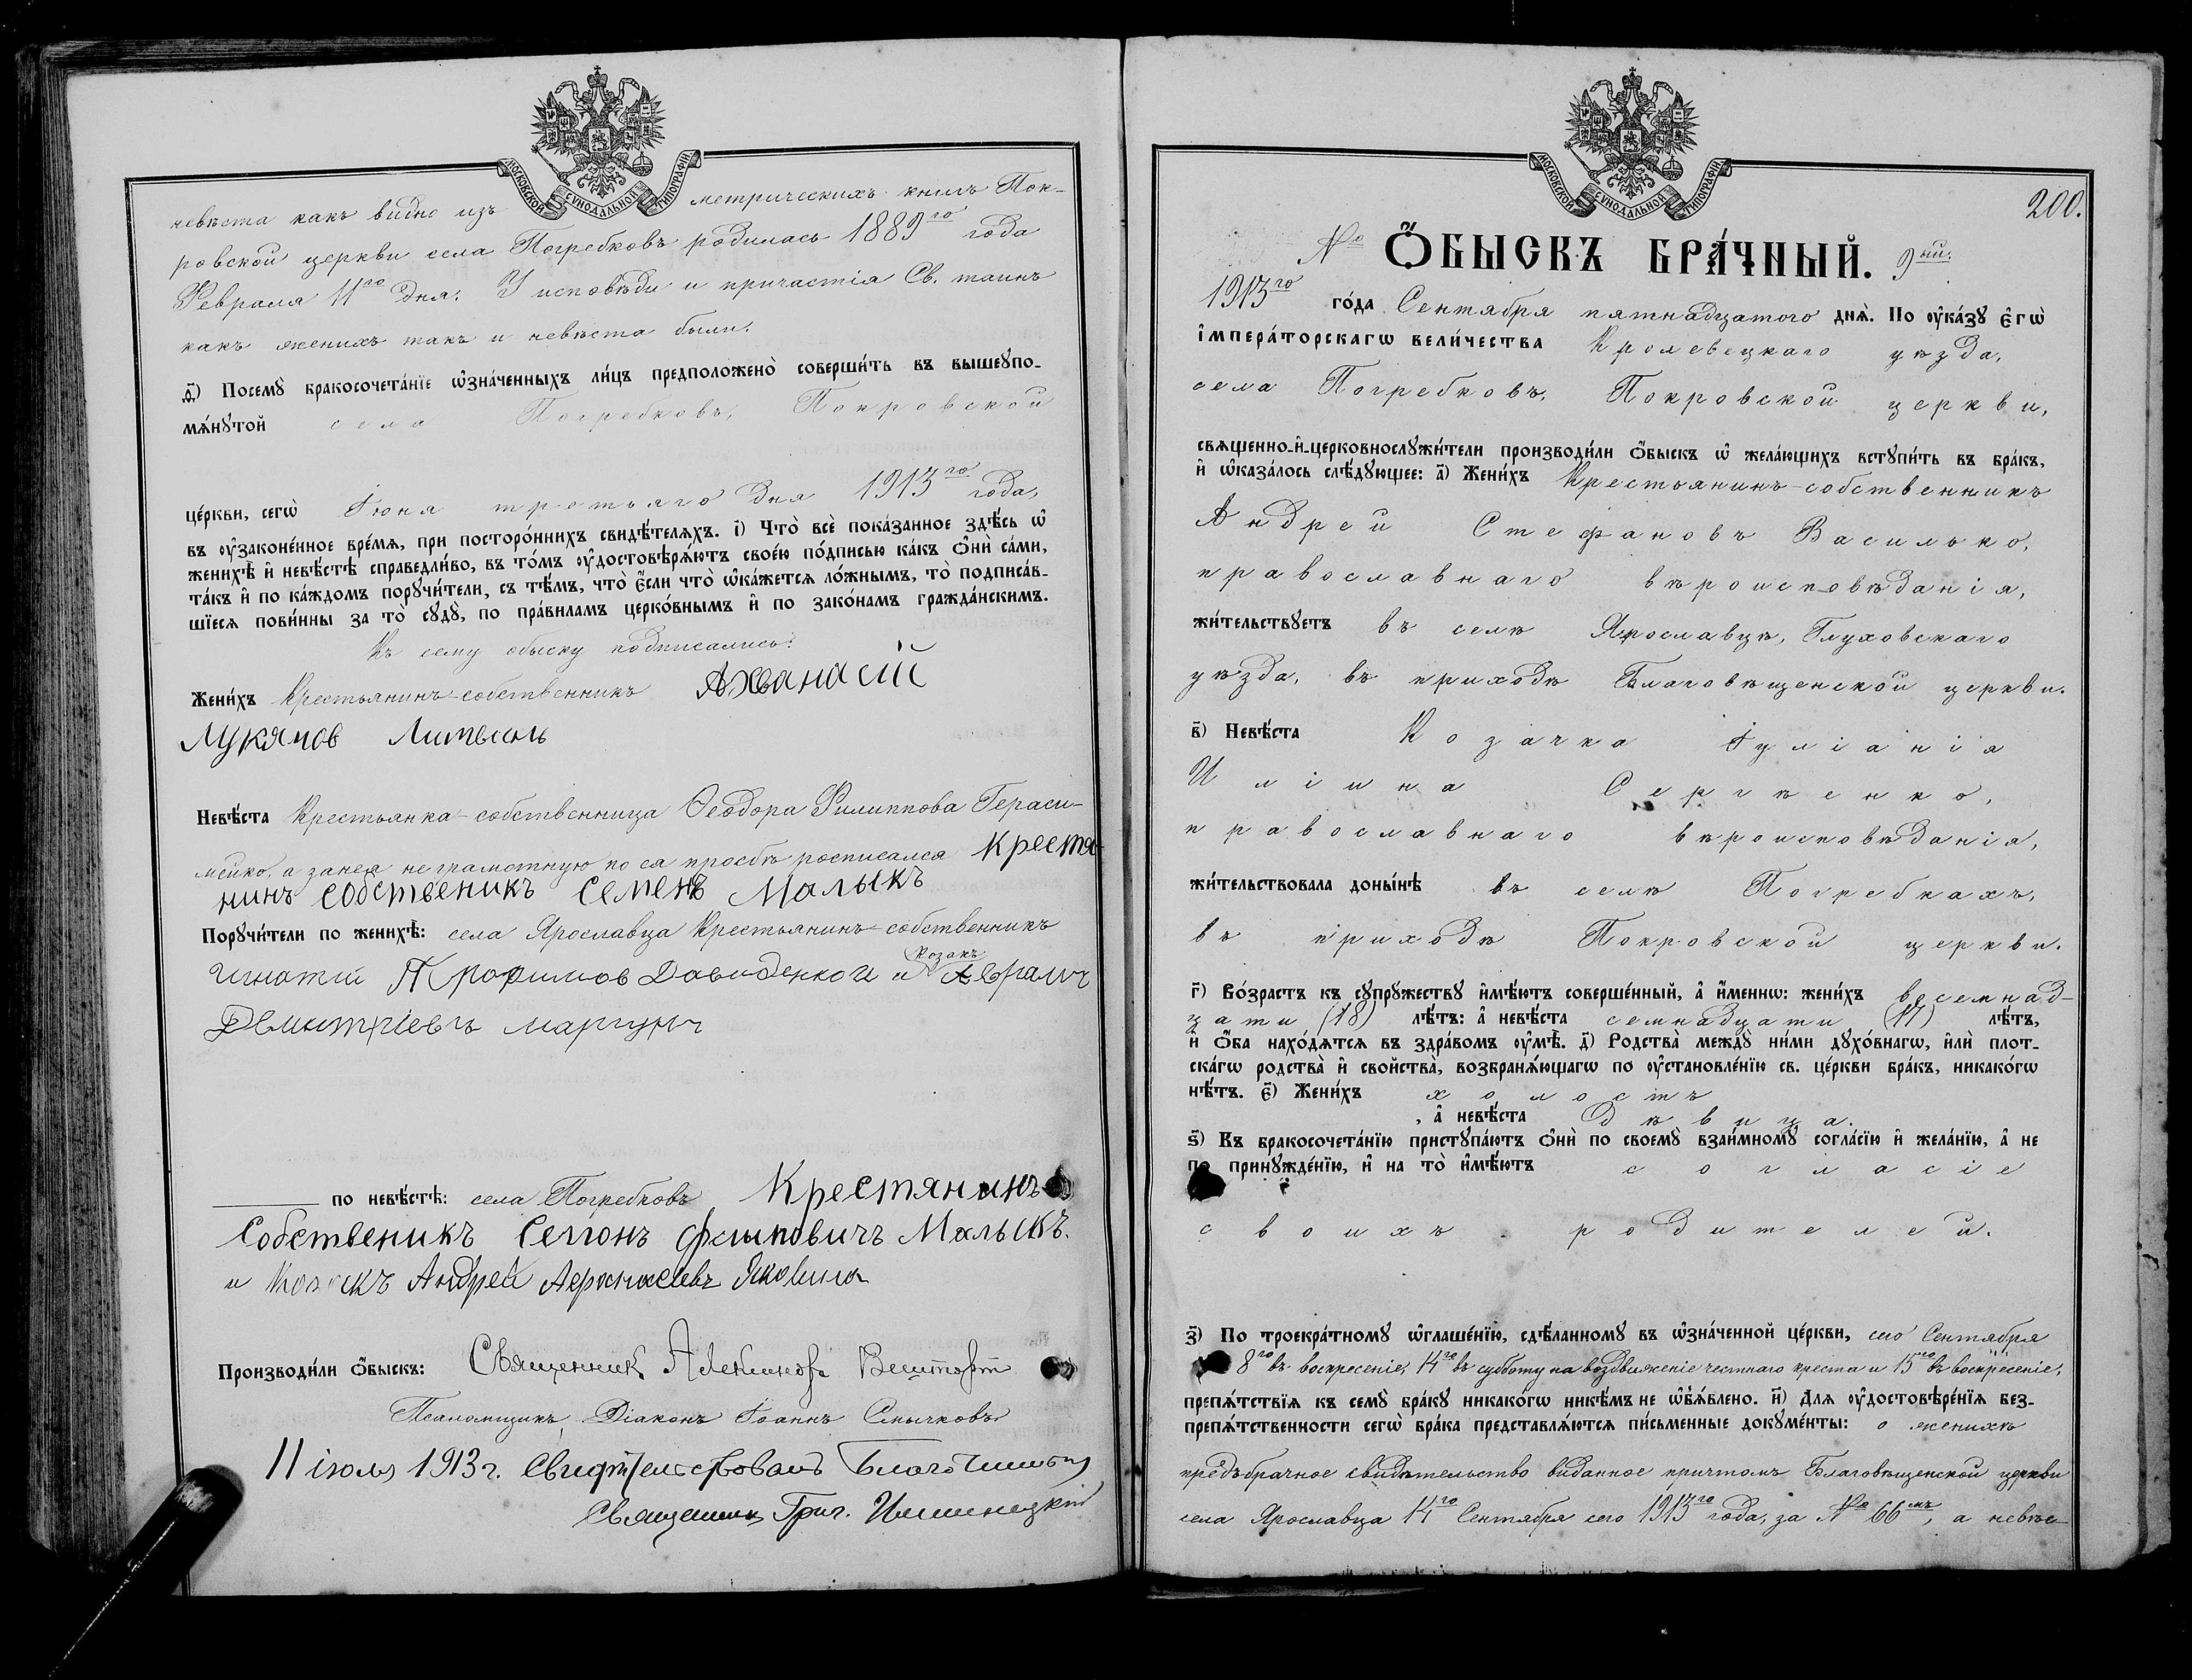 МОСКОВСКОЙ СѴНОДАЛЬНОЙ ТИПОГРАФІИ
невѣста какъ видно изъ метрическихъ книгъ Пок-
ровской церкви села Погребковъ родилась 1889го года
Февраля 11го дня. У исповѣди и причастія Св. таинъ
какъ женихъ такъ и невѣста были.
д҃) Посемꙋ̀ бракосочета́нїе ѡ҆зна́ченныхъ ли́цъ предположено̀ соверши́ть въ вышеꙋпо-
мѧ́нꙋтой села Погребковъ, Покровской
це́ркви, сегѡ̀ Іюня третьяго дня 1913го года,
въ ᲂу҆законе́нное вре́мѧ, при посторо́ннихъ свидѣ́телѧхъ. і҃) Что̀ всѐ пока́занное здѣ́сь ѡ҆
женихѣ̀ и҆ невѣ́стѣ справедли́во, въ то́мъ ᲂу҆достовѣрѧ́ютъ свое́ю по́дписью ка́къ ѻ҆нѝ са́ми,
та́къ и҆ по ка́ждомъ порꙋчи́тели, съ тѣ́мъ, что̀ є҆́сли что̀ ѡ҆ка́жетсѧ ло́жнымъ, то̀ подписа́в-
шїесѧ пови́нны за то̀ сꙋдꙋ̀, по пра́виламъ церко́внымъ и҆ по зако́намъ гражда́нскимъ.
Къ сему обыску подписались:
Жени́хъ Крестьянинъ-собственникъ Ахванасій
Лукяновъ
Невѣ́ста Крестьянка-собственница Ѳеодора Филиппова Гераси-
мейко, а занея неграмотную по ея просьбѣ росписался Крестя
нинъ собственикъ Семенъ Малыкъ
Порꙋчи́тели по женихѣ̀: села Ярославца Крестьянинъ-собственникъ
Козакъ
Игнатій Трофимов Давиденко и и
Дмитріевъ
по невѣ́стѣ: села Погребковъ Крестянинъ
Собственикъ Семонъ Малыкъ.
и Козакъ Андрей Афанасіевъ Яковина
Производи́ли ѻ҆́быскъ: Священник
Псаломщикъ, Діаконъ Іоаннъ Смычковъ
11 іюля 1913 г. Свидѣтельствовалъ Благочинный
Священник Григ.
МОСКОВСКОЙ СѴНОДАЛЬНОЙ ТИПОГРАФІИ
200.
№ Ѻ҆́БЫСКЪ БРА́ЧНЫЙ. 9ый.
1913го го́да Сентября пятнадцатого днѧ̀. По ᲂу҆ка́зꙋ є҆гѡ̀
і҆мпера́торскагѡ вели́чества Кролевецкаго уѣзда,
села Погребковъ, Покровской церкви,
свѧщенно-и҆-церковнослꙋжи́тели производи́ли ѻ҆́быскъ ѡ҆ жела́ющихъ встꙋпи́ть въ бра́къ,
и҆ ѡ҆каза́лось слѣ́дꙋющее: а҃) Жени́хъ Крестьянинъ-собственникъ
Андрей Стефановъ Василько,
православнаго вѣроисповѣданія,
жи́тельствꙋетъ въ селѣ Ярославцѣ, Глуховскаго
уѣзда, въ приходѣ Благовѣщенской церкви.
в҃) Невѣ́ста Козачка Іуліанія
Иліина Сергѣенко,
православнаго вѣроисповѣданія,
жи́тельствовала доны́нѣ въ селѣ Погребкахъ,
въ приходѣ Покровской церкви.
г҃) Во́зрастъ къ сꙋпрꙋжествꙋ и҆мѣ́ютъ соверше́нный, а҆ и҆́меннѡ: жени́хъ восемнад-
цати (18) лѣ́тъ: а҆ невѣ́ста семнадцати (17) лѣ́тъ,
и҆ ѻ҆́ба нахо́дѧтсѧ въ здра́вомъ ᲂу҆мѣ̀. д҃) Родства̀ междꙋ̀ ни́ми дꙋхо́внагѡ, и҆лѝ плот-
ска́гѡ родства̀ и҆ свойства̀, возбранѧ́ющагѡ по ᲂу҆становле́нїю св. це́ркви бра́къ, никако́гѡ
нѣ́тъ. є҃) Жени́хъ холостъ
, а҆ невѣ́ста дѣвица.
ѕ҃) Къ бракосочета́нїю пристꙋпа́ютъ ѻ҆нѝ по своемꙋ̀ взаи́мномꙋ согла́сїю и҆ жела́нїю, а҆ не
по принꙋжде́нїю, и҆ на то̀ и҆мѣ́ютъ согласіе
своихъ родителей.
з҃) По троекра́тномꙋ ѡ҆глаше́нїю, сдѣ́ланномꙋ въ ѡ҆зна́ченной це́ркви, сего Сентября
8го въ воскресеніе, 14го въ субботу на воздвиженіе честнаго креста и 15го въ воскресеніе,
препѧ́тствїѧ къ семꙋ̀ бра́кꙋ никако́гѡ никѣ́мъ не ѡ҆б̾ѧ́влено. и҃) Длѧ ᲂу҆достовѣре́нїѧ без-
препѧ́тственности сегѡ̀ бра́ка представлѧ́ютсѧ пи́сьменные докꙋме́нты: о женихѣ
предъбрачное свидѣтельство виданное причтомъ Благовѣщенской церкви
села Ярославца 14го Сентября сего 1913го года, за № 66мъ, а невѣс-